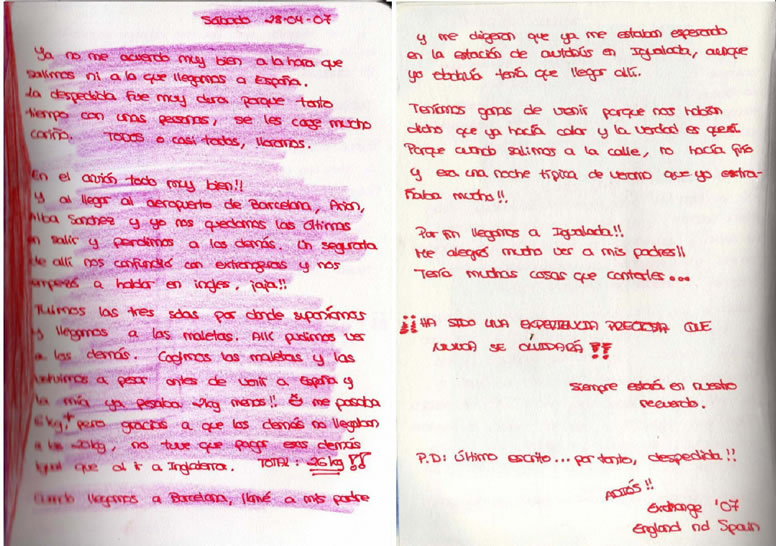 Sábado 28-04-07
Ya no me acuerdo muy bien a la hora que
salimos ni a la que llegamos a España.
La despedida fue muy dura porque tanto
tiempo con unas personas, se les coge mucho
cariño. TODOS o casi todos, lloramos.
En el avión todo muy bien!!
y al llegar al aeropuerto de Barcelona,
Alba Sanchez y yo nos quedamos las últimas
en salir y perdimos a los demás. Un segurata
de allí nos confundió con extrangeras y nos
empezó a hablar en ingles, jaja!!
Fuimos las tres solas por donde suponíamos
y llegamos a las maletas. Allí pudimos ver
a los demás. Cogimos las maletas y las
volvimos a pesar antes de venir a España y
la mía ya pesaba 2kg menos!! me pasaba
6kg, pero gracias a que los demás no llegaban
a los 20kg, no tuve que pagar esos demás
igual que al ir a Inglaterra. TOTAL: 26kg!!
Cuando llegamos a Barcelona, llamé a mis padre
y me digeron que ya me estaban esperando
en la estación de autobús en Igualada, aunque
yo todavía tenía que llegar allí.
Teníamos ganas de venir porque nos habían
dicho que ya hacía calor y la verdad es que sí.
Porque cuando salimos a la calle, no hacía frío
y era una noche típica de verano que yo extra-
ñaba mucho!!.
Por fin llegamos a Igualada!!
Me alegré mucho ver a mis padres!!
Tenía muchas cosas que contarles...
¡¡HA SIDO UNA EXPERIENCIA PRECIOSA QUE
NUNCA SE OLVIDARÁ!!
Siempre estará en nuestro
recuerdo.
P.D: Último escrito... por tanto, despedida!!
ADIÓS!!
Exchange '07
England nd Spain